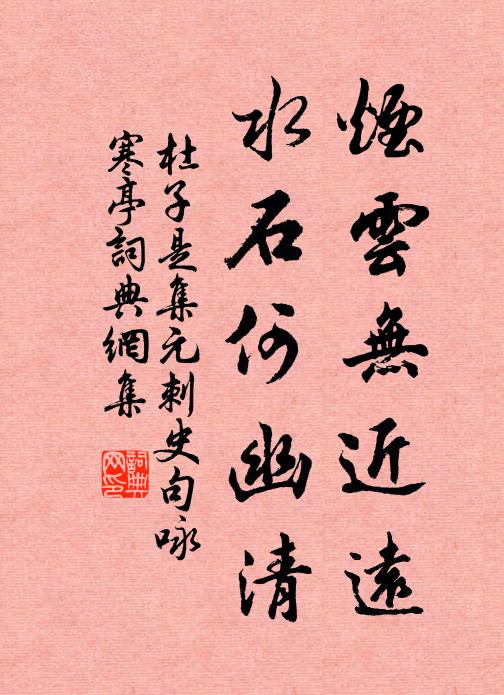 煙雲無近遠
水石何幽清
杜子是集元刺史句咏
寒亭詞典網集
詞典网印